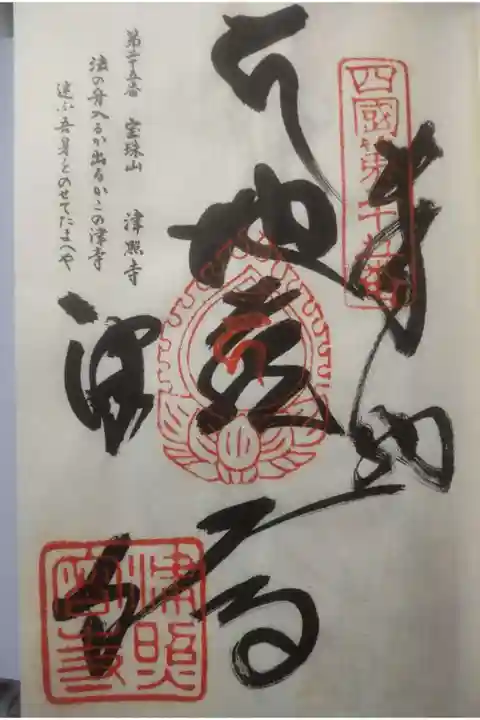 四國第二十五番
奉納
地蔵
津寺
第二十五番　宝珠山　津照寺
法の舟入るか出るかこの津寺
迷ふ吾身をのせてたまへや
津照